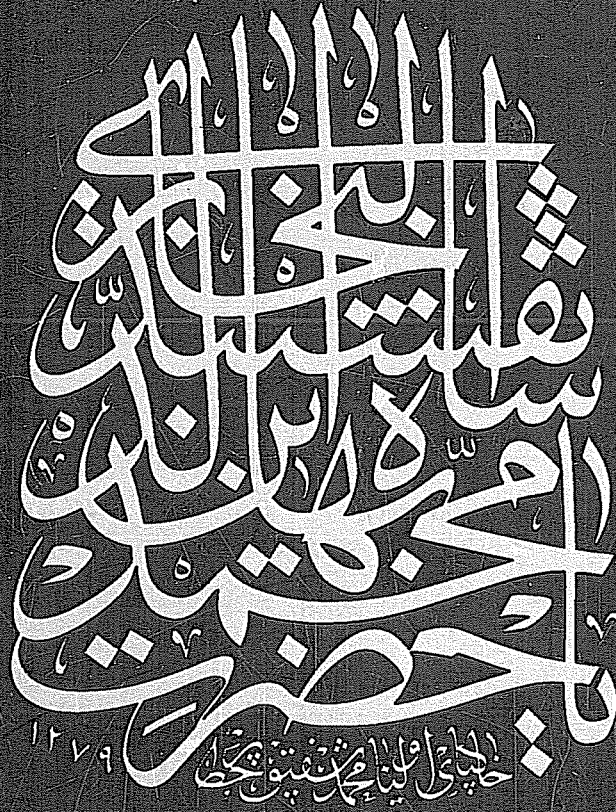 يا حضرت
محمد بهاء الدين
شاه نقشبند
البخاري
خاكپاى اوليا محمد شفيق
١٢٧٩